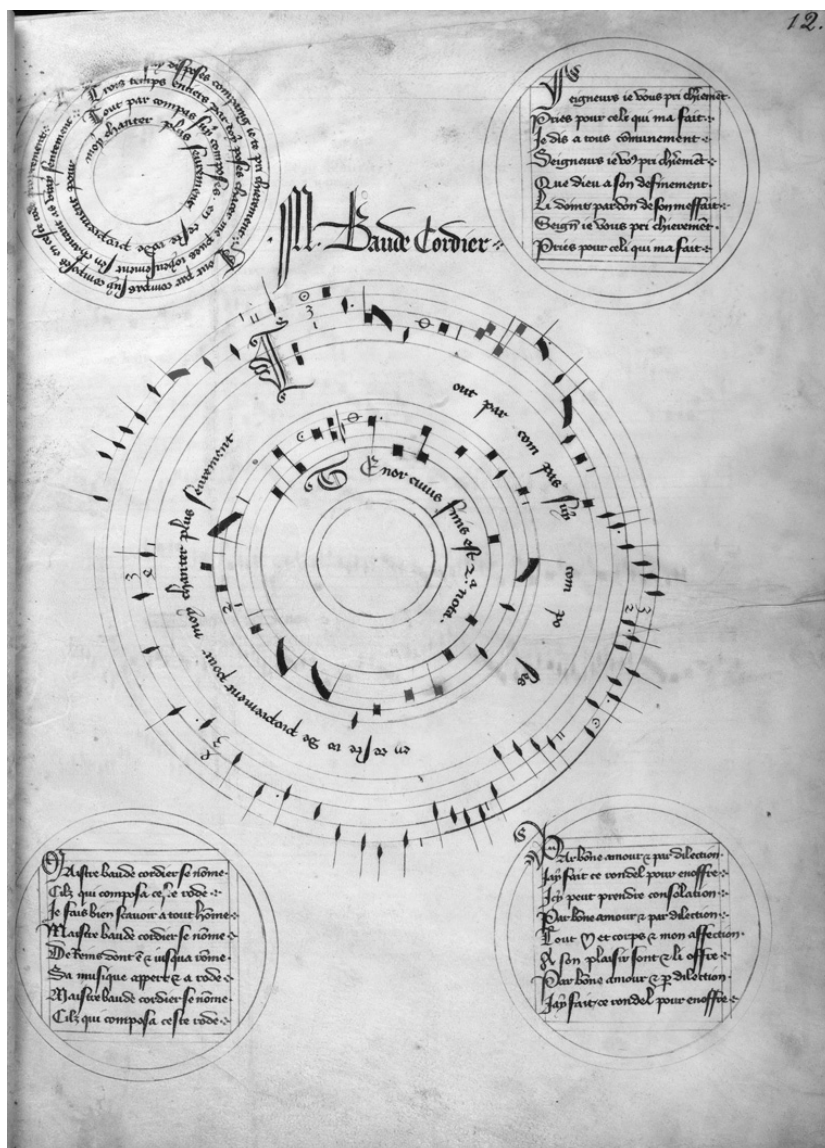 12.
Trois temps entiers par toy posés
Tout par compas suy composés en ceste rode proprement pour
moy chanter plus seurement
M. Baude Cordier
Seigneurs ie vous pri chieremēt
Pries pour celi qui ma fait
Je dis a tous cōmunement
Seigneurs ie vo9 pri chieremēt
Que dieu a son definement
Li doint pardon de son meffait
Seign̄ ie vous pri chierement
Pries pour celi qui ma fait
Tout par compas suy composes
en ceste rode proprement pour moy chanter plus seurement
Tenor cuius finis est 2a nota.
Maistre baude cordier se nōme
Cilz qui composa ceste rode
Je fais bien scavoir a tout hōme
Maistre baude cordier se nōme
De Reims dont ē & iusqua rōme
Sa musique appert & a rode
Maistre baude cordier se nōme
Cilz qui composa ceste rode
Par bōne amour & par dilection
Jay fait ce rondel pour enoffre
Jcy peut prendre consolation
Par bōne amour & par dilection
Tout ♡ et corps & mon affection
A son plaisir sont & li offre
Par bōne amour & p dilection
Jay fait ce rondel pour enoffre